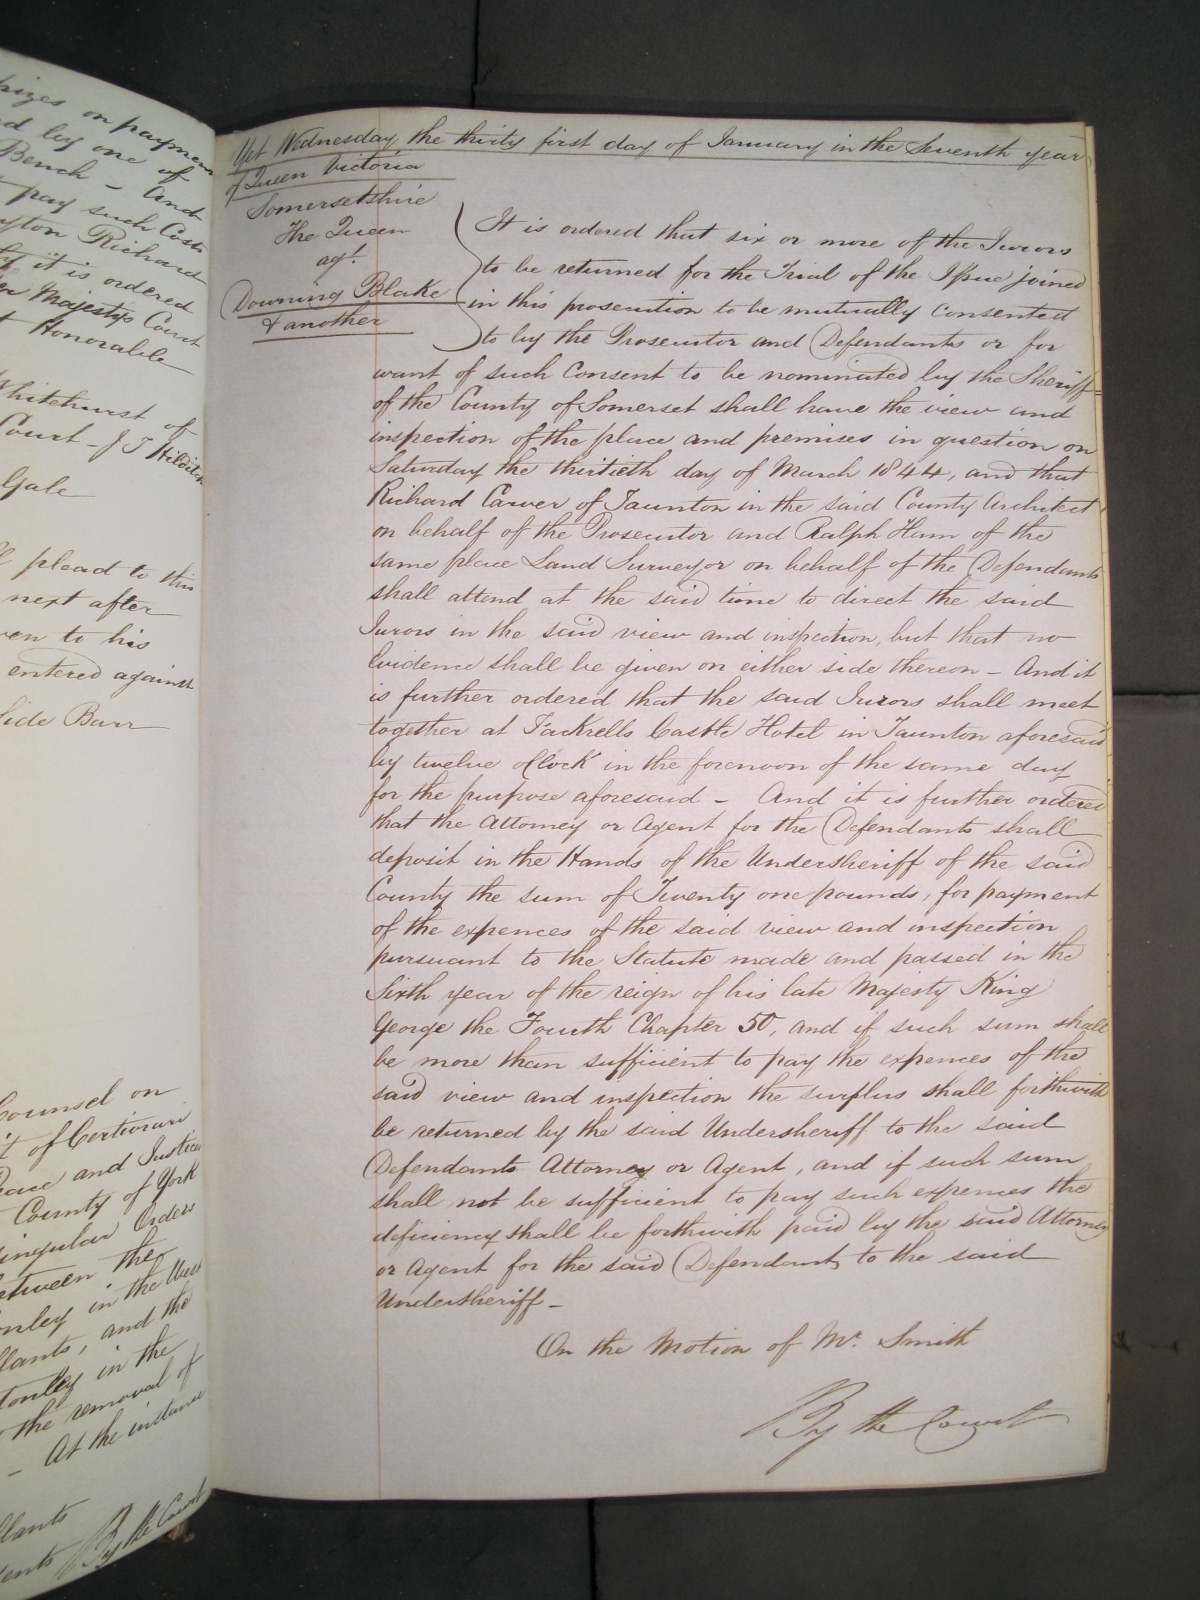 pizes on paymen
d by one of
Bench - And
pay such Costs
yton Richard
it is ordered
er Majestys Court
t Honorable
Whitehurst of
Court - J T Hilditch
Gale
plead to this
next after
ven to his
entered against
lide Barr
Counsel on
of Certiorari
Peace and Justices
County of York
Singular Orders
between the
onley in the West
llants, and the
tonley in the
the removal of
- At the instance
llants
ents By the Court
Yet Wednesday the thirty first day of January in the Seventh year
of Queen Victoria
Somersetshire
The Queen
agt.
Downing Blake
& another
It is ordered that six or more of the Jurors
to be returned for the Trial of the Issue joined
in this prosecution to be mutually consented
to by the Prosecutor and Defendants or for
want of such Consent to be nominated by the Sheriff
of the County of Somerset shall have the view and
inspection of the place and premises in question on
Saturday the thirtieth day of March 1844, and that
Richard Carver of Taunton in the said County Architect
on behalf of the Prosecutor and Ralph Ham of the
same place Land Surveyor on behalf of the Defendants
shall attend at the said time to direct the said
Jurors in the said view and inspection, but that no
Evidence shall be given on either side thereon - And it
is further ordered that the said Jurors shall meet
together at Fackrells Castle Hotel in Taunton aforesaid
by twelve oClock in the forenoon of the same day
for the purpose aforesaid - And it is further ordered
that the Attorney or Agent for the Defendants shall
deposit in the Hands of the Undersheriff of the said
County the sum of Twenty one pounds, for payment
of the expences of the said view and inspection
pursuant to the Statute made and passed in the
Sixth year of the reign of his late Majesty King
George the Fourth Chapter 50, and if such sum shall
be more than sufficient to pay the expences of the
said view and inspection the surplus shall forthwith
be returned by the said Undersheriff to the said
Defendants Attorney or Agent, and if such sum
shall not be sufficient to pay such expences the
deficiency shall be forthwith paid by the said Attorney
or Agent for the said Defendants to the said
Undersheriff -
On the Motion of Mr. Smith
By the Court